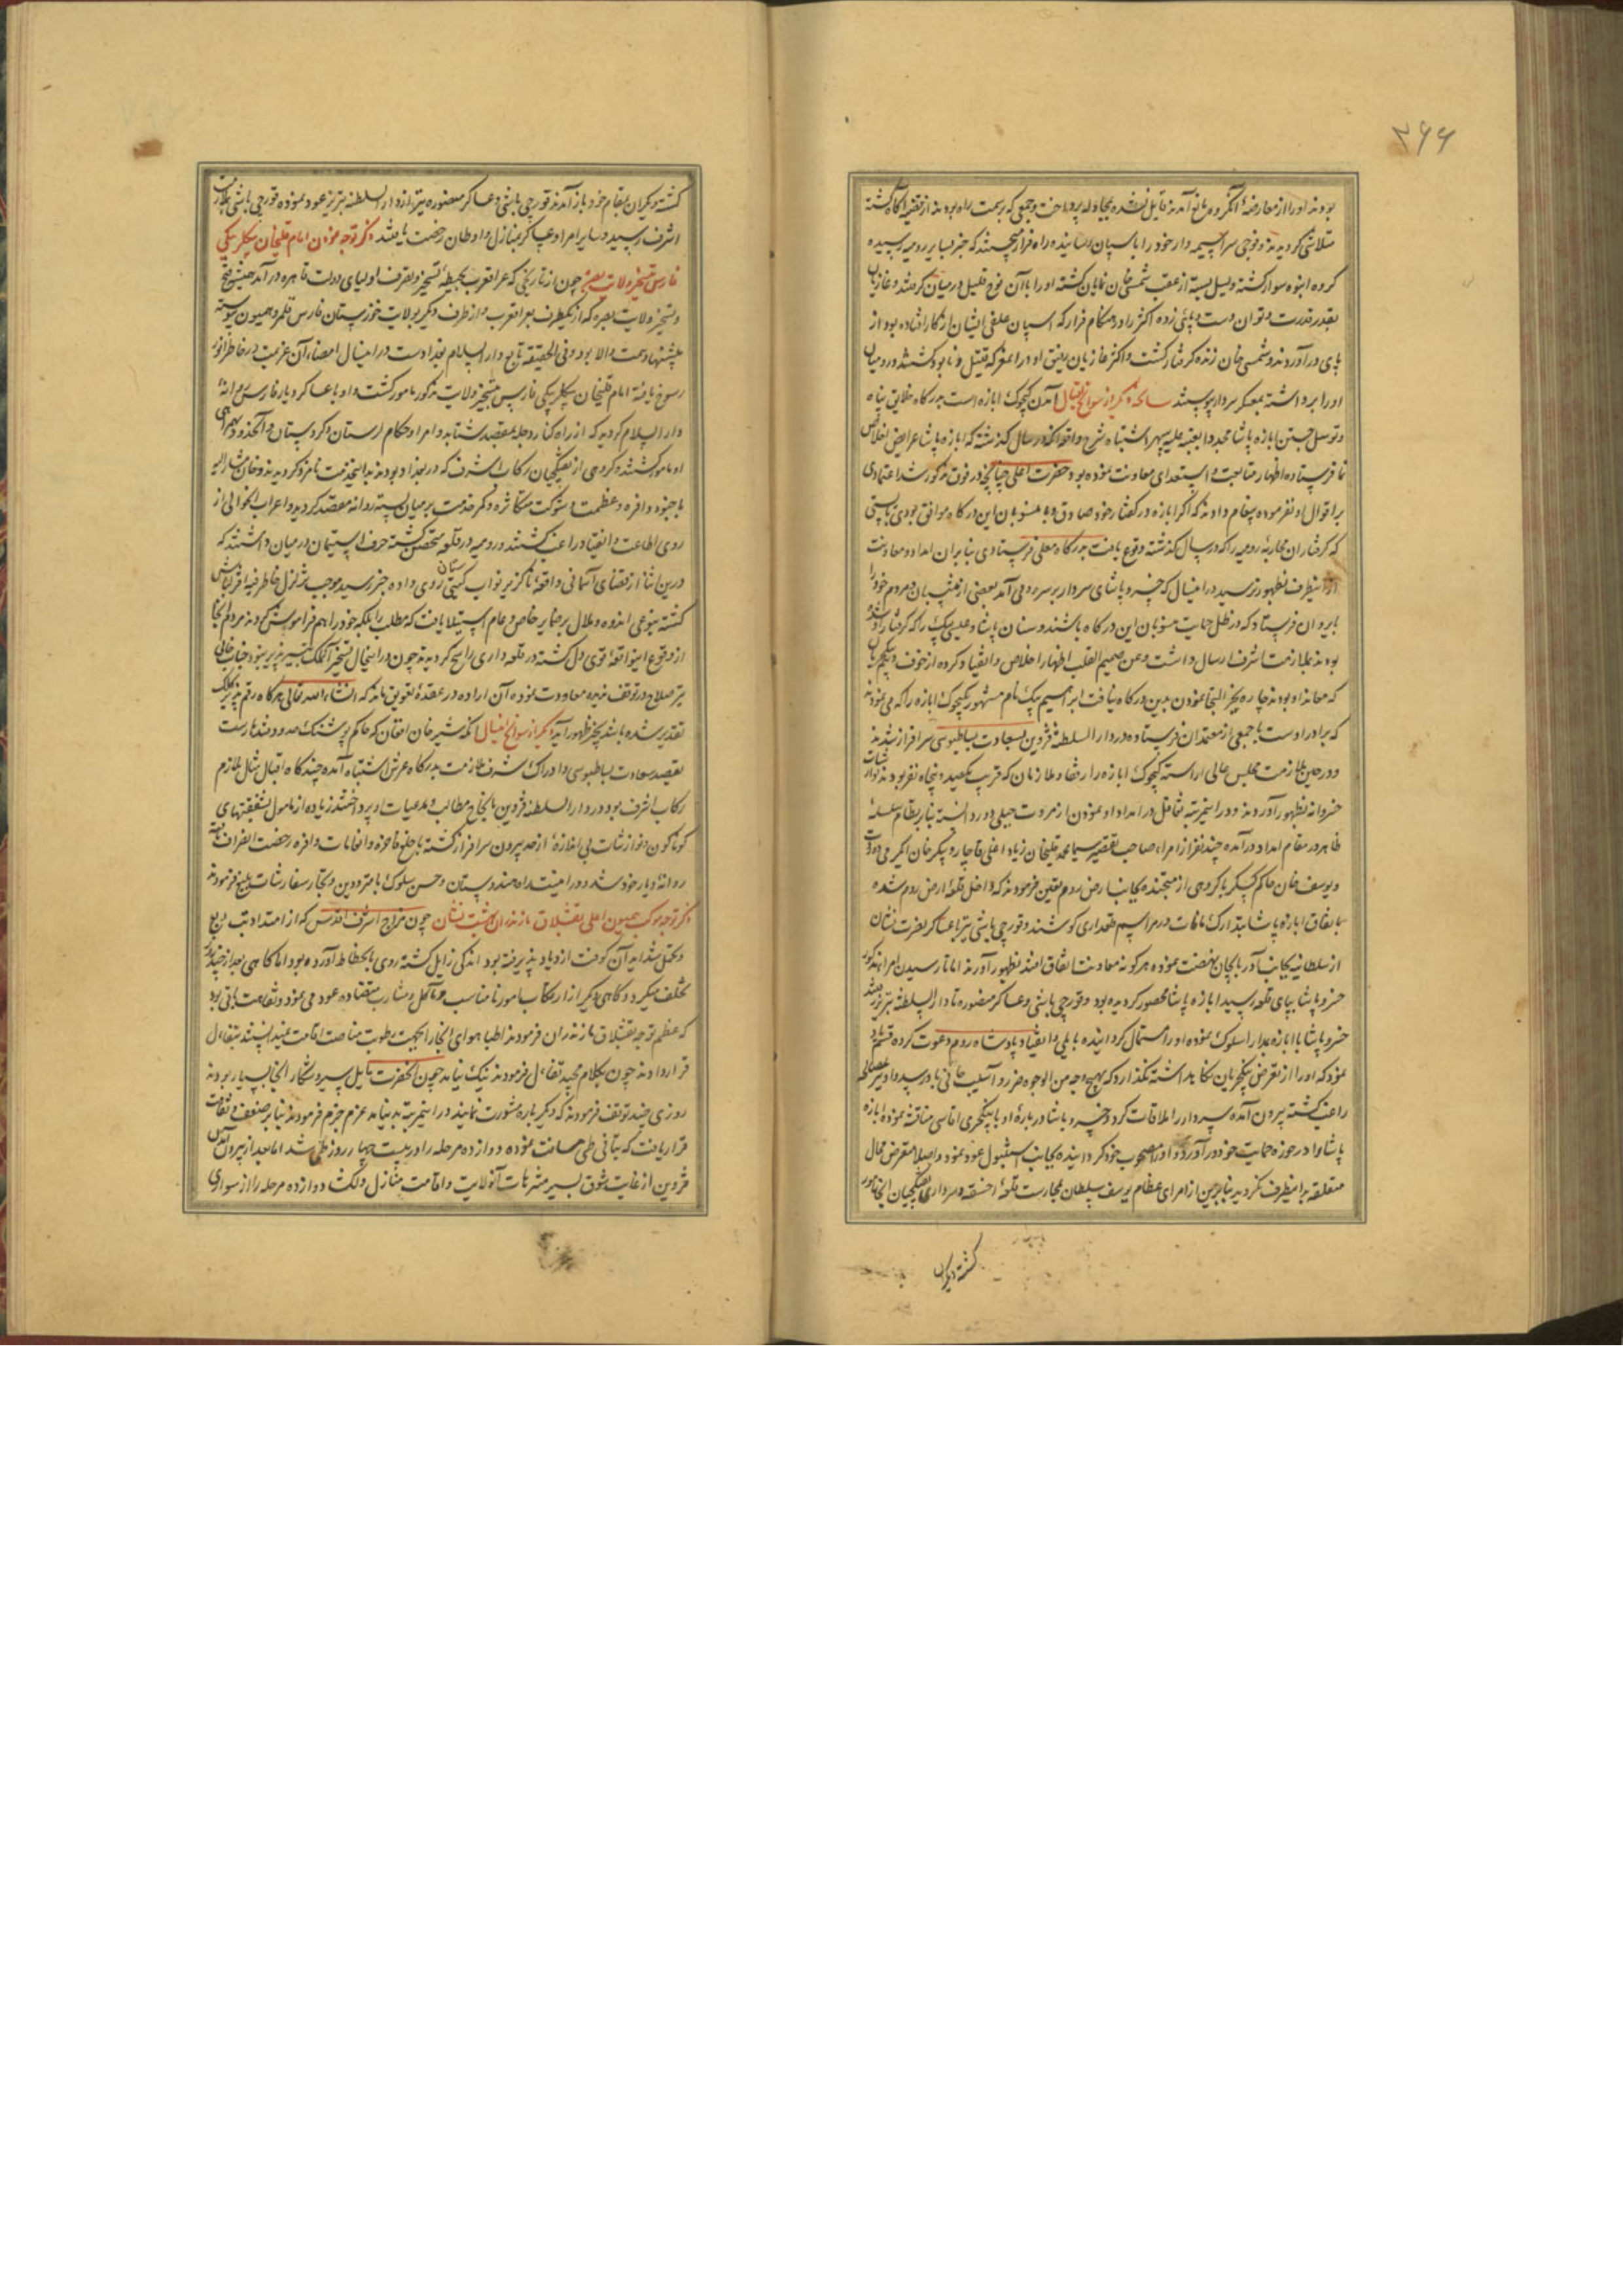 ۳۶۶
بودند او را از معارضهٔ آنگروه مانع آمدند قایل نشده بمجادله پرداخت و جمعی که بر سمت راه بودند از قضیه آگاه گشته
متلاشی گردیدند و فوجی سراسیمه وار خود را باسپان رسانیده راه فرار
گروه انبوه سوار گشته و لیل بسته از عقب شمسی خان نمایان گشته او را با آن فوج قلیل در میان گرفتند و غازیان
بقدر قدرت و توان دست و پائی زده اکثر را در هنگام فرار که اسپان علفی ایشان از کار افتاده بود از
پای درآوردند و شمسی خان زنده گرفتار گشت و اکثر غازیان رفیق او در آن معرکه قتیل و نابود گشتند و رومیان
او را برداشته بمعسکر سردار پیوستند سانحهٔ دیگر از سوانح اقبال آمدن کچوک ابازه است بدرگاه خلایق پناه
و توسل جستن ابازه پاشا مجددا بعتبه علیه سپهر اشتباه شرح واقعه آنکه در سال گذشته که ابازه پاشا عرایض اخلاص
نما فرستاده اظهار متابعت و استدعای معاونت نموده بود حضرت اعلی چنانچه در فوق مذکور شد اعتمادی
بر اقوال او نفرموده پیغام دادند که اگر ابازه در گفتار خود صادق و با منسوبان این درگاه موافق بودی بایستی
که گرفتاران محاربهٔ رومیه را که در سال گذشته وقوع یافت بدرگاه معلی فرستادی بنابر آن امداد و معاونت
از اینطرف بظهور نرسید در این سال که خسرو پاشای سردار بر سر او می آمد بعضی از منتسبان و مردم خود را
بایروان فرستاد که در ظل حمایت منسوبان این درگاه باشند و سنان پاشا و علی بیک را که گرفتار او شده
بودند بملازمت اشرف ارسال داشت و من صمیم القلب اظهار اخلاص و انقیاد کرده از خوف ینکچریان
که معاند او بودند چاره بجز التجا نمودن بدین درگاه نیافت ابراهیم بیک نام مشهور بکچوک ابازه را که می نمودند
که برادر اوست با جمعی از معتمدان فرستاده در دار السلطنه قزوین بسعادت بساطبوسی سرافراز شدند
و در حین ملازمت مجلس عالی آراسته کچوک ابازه را با رفقا و ملازمان که قریب یکصد و پنجاه نفر بودند نوازشات
خسروانه بظهور آوردند و در این مرتبه تغافل در امداد او نمودن از مروت جبلی دور دانسته بنابر نظام سلسلهٔ
ظاهر در مقام امداد درآمده چند نفر از امراء صاحب
و یوسف خان حاکم کسکر با گروهی از تفنگچیان بجانب ارض روم تعیین فرمودند که داخل قلعهٔ ارض روم شده
باتفاق ابازه پاشا بتدارک مافات در مراسم قلعه داری کوشند و قورچی باشی نیز با عساکر نصرت نشان
از سلطانیه بجانب آذربایجان نهضت نموده هر گونه معاونت اتفاق افتد بظهور آورند اما تا رسیدن امراء مذکور
خسرو پاشا بپای قلعه رسید ابازه پاشا محصور گردیده بود و قورچی باشی و عساکر منصوره تا دار السلطنه تبریز رفتند
خسرو پاشا با ابازه بمدارا سلوک نموده او را استمال گردانیده بایلی و انقیاد پادشاه روم دعوت کرده قسم یاد
نمود که او را از تعرض ینکچریان نگاه داشته نگذارد که بهیچ وجه من الوجوه ضرر و آسیب جانی باو رسد و او نیز بمصالحه
راغب گشته بیرون آمده سردار را ملاقات کرد و خسرو پاشا در بارهٔ او با ینکچری آقاسی مناقشه نموده ابازه
پاشا را در حوزهٔ حمایت خود درآورد و او را مصحوب خود گردانیده بجانب استنبول عود نمود و اصلا متعرض محال
متعلقه بر اینطرف نگردید بنابرین از امرای عظام یوسف سلطان بحارست قلعهٔ اخسقه و سرداری تفنگچیان آنجا مأمور
گشته دیگران
گشته دیگران بمقام خود باز آمدند قورچی باشی و عساکر منصوره نیز از دار السلطنه تبریز عود نموده قورچی باشی بملازمت
اشرف رسید و سایر امرا و عساکر بمنازل و اوطان رخصت یافتند ذکر توجه نمودن امام قلیخان بیکلر بیکی
فارس بتسخیر ولایت بصره چون از تاریخی که عراق عرب بحیطهٔ تسخیر و تصرف اولیای دولت قاهره درآمد همیشه فتح
و تسخیر ولایت بصره که از یکطرف بعراق عرب و از طرف دیگر بولایت خوزستان فارس قلمرو همیون پیوسته
پیشنهاد همت والا بود و فی الحقیقه تابع دار السلام بغداد است در این سال امضاء آن عزیمت در خاطر انور
رسوخ یافته امام قلیخان بیکلر بیکی فارس بتسخیر ولایت مذکور مأمور گشت و او با عساکر دیار فارس روانهٔ
دار السلام گردید که از راه کنار دجله بمقصد شتابد و امرا و حکام لرستان و کردستان و آنحدود بهمراهی
او مأمور گشتند و گروهی از تفنگچیان رکاب اشرف که در بغداد بودند بدانخدمت نامزد گردیدند و خان مشار الیه
با جنود وافره و عظمت و شوکت متکاثره کمر خدمت بر میان بسته روانه مقصد گردید و اعراب آنحوالی از
روی اطاعت و انقیاد راغب گشتند و رومیه در قلعه متحصن گشته حرف استیمان در میان داشتند که
درین اثنا از قضای آسمانی واقعهٔ ناگزیر نواب گیتی ستان روی داده خبر رسید موجب تزلزل خاطر
گشته بنوعی اندوه و ملال بر ضمایر خاص و عام استیلا یافت که مطلب را بلکه خود را هم فراموش کردند مردم آنجا
از وقوع این واقعهٔ قوی دل گشته در قلعه داری راسخ گردیدند چون در آنحال تسخیر آنملک میسر پذیر نبود جناب خانی
نیز صلاح در توقف ندیده معاودت نموده آن اراده در عقدهٔ تعویق ماند که انشاء الله تعالی هرگاه رقم پذیر کلک
تقدیر شده باشد بحیز ظهور آید دیگر از سوانح اینسال آنکه شیر خان افغان که حاکم پوشنگ و حدود قندهار است
بقصد سعادت بساطبوسی و ادراک شرف ملازمت بدرگاه عرش اشتباه آمده چندگاه اقبال مثال ملازم
رکاب اشرف بود در دار السلطنه قزوین بانجاح مطالب و مدعیات او پرداختند زیاده از مأمول بشفقتهای
گوناگون و نوازشات بی اندازهٔ از حد بیرون سرافراز گشته با خلع فاخره و انعامات وافره رخصت انصراف یافته
روانهٔ دیار خود شد و در امنیت راه هندوستان و حسن سلوک با مترددین و تجار سفارشات بلیغ فرمودند
ذکر توجه موکب همیون اعلی بقشلاق مازندران بهشت نشان چون مزاج اشرف اقدس که از امتداد تب ربع
و تحمل شداید آن کوفت ازدیاد پذیرفته بود اندکی زایل گشته روی بانحطاط آورده بود اما گاهی بعد از چند روز
تخلف میکرد و گاهی دیگر از ارتکاب بامور نامناسب و مآکل و مشارب متضاده عود می نمود و نقاهت باقی بود
که عظم توجه بقشلاق مازندران فرمودند اطبا هوای آنجا را بجهت رطوبت مناسب اقامت نمی پسندیدند بتفأل
قرار دادند چون بکلام مجید تفأل فرمودند نیک نیامد چون آنحضرت مایل سیر و شکار آنجا بسیار بودند
روزی چند توقف فرمودند که دیگر باره مشورت نمایند در این مرتبه بد نیامد عزم جزم فرمودند بنابر ضعف و نقاهت
قرار یافت که بتأنی طی مسافت نموده دوازده مرحله را در بیست و چهار روز طی شد اما بعد از بیرون آمدن
قزوین از غایت شوق بسیر متنزهات آنولایت و اقامت منازل دلکش دوازده مرحله را از سواری